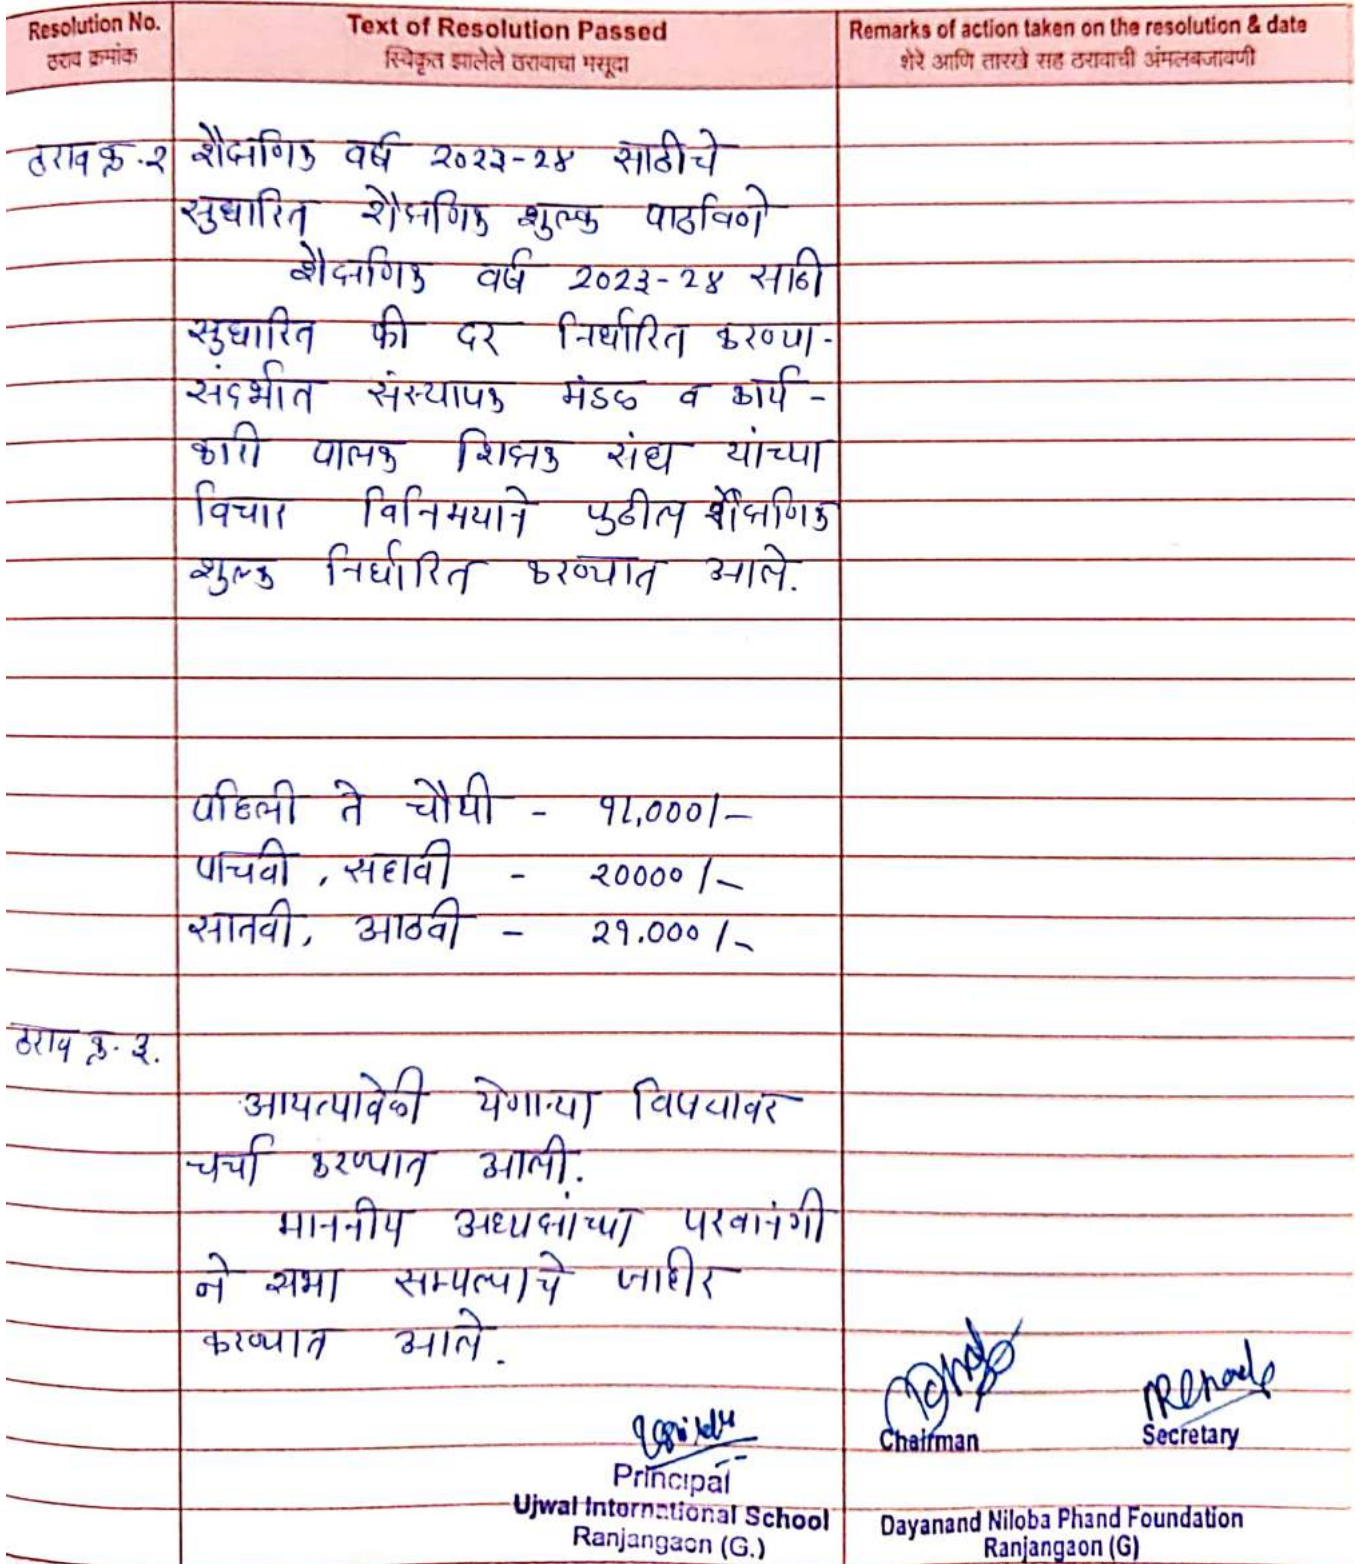 Resolution No.
ठराव क्रमांक
Text of Resolution Passed
स्विकृत झालेले ठरावाचा मसूदा
Remarks of action taken on the resolution & date
शेरे आणि तारखे सह ठरावाची अंमलबजावणी
ठराव क्र.२ शैक्षणिक वर्ष २०२३-२४ साठीचे
सुधारित शैक्षणिक शुल्क पाठविणे
शैक्षणिक वर्ष २०२३-२४ साठी
सुधारित फी दर निर्धारित करण्या-
संदर्भात संस्थापक मंडळ व कार्य-
कारी पालक शिक्षक संघ यांच्या
विचार विनिमयाने पुढील शैक्षणिक
शुल्क निर्धारित करण्यात आले.
पहिली ते चौथी - १८,०००/-
पाचवी, सहावी - २००००/-
सातवी, आठवी - २१.०००/-
ठराव क्र. ३.
आयत्यावेळी येणाऱ्या विषयावर
चर्चा करण्यात आली.
माननीय अध्यक्षांच्या परवानंगी
ने सभा सम्पल्याचे जाहीर
करण्यात आले.
Principal
Ujwal International School
Ranjangaon (G.)
Chairman
Secretary
Dayanand Niloba Phand Foundation
Ranjangaon (G)